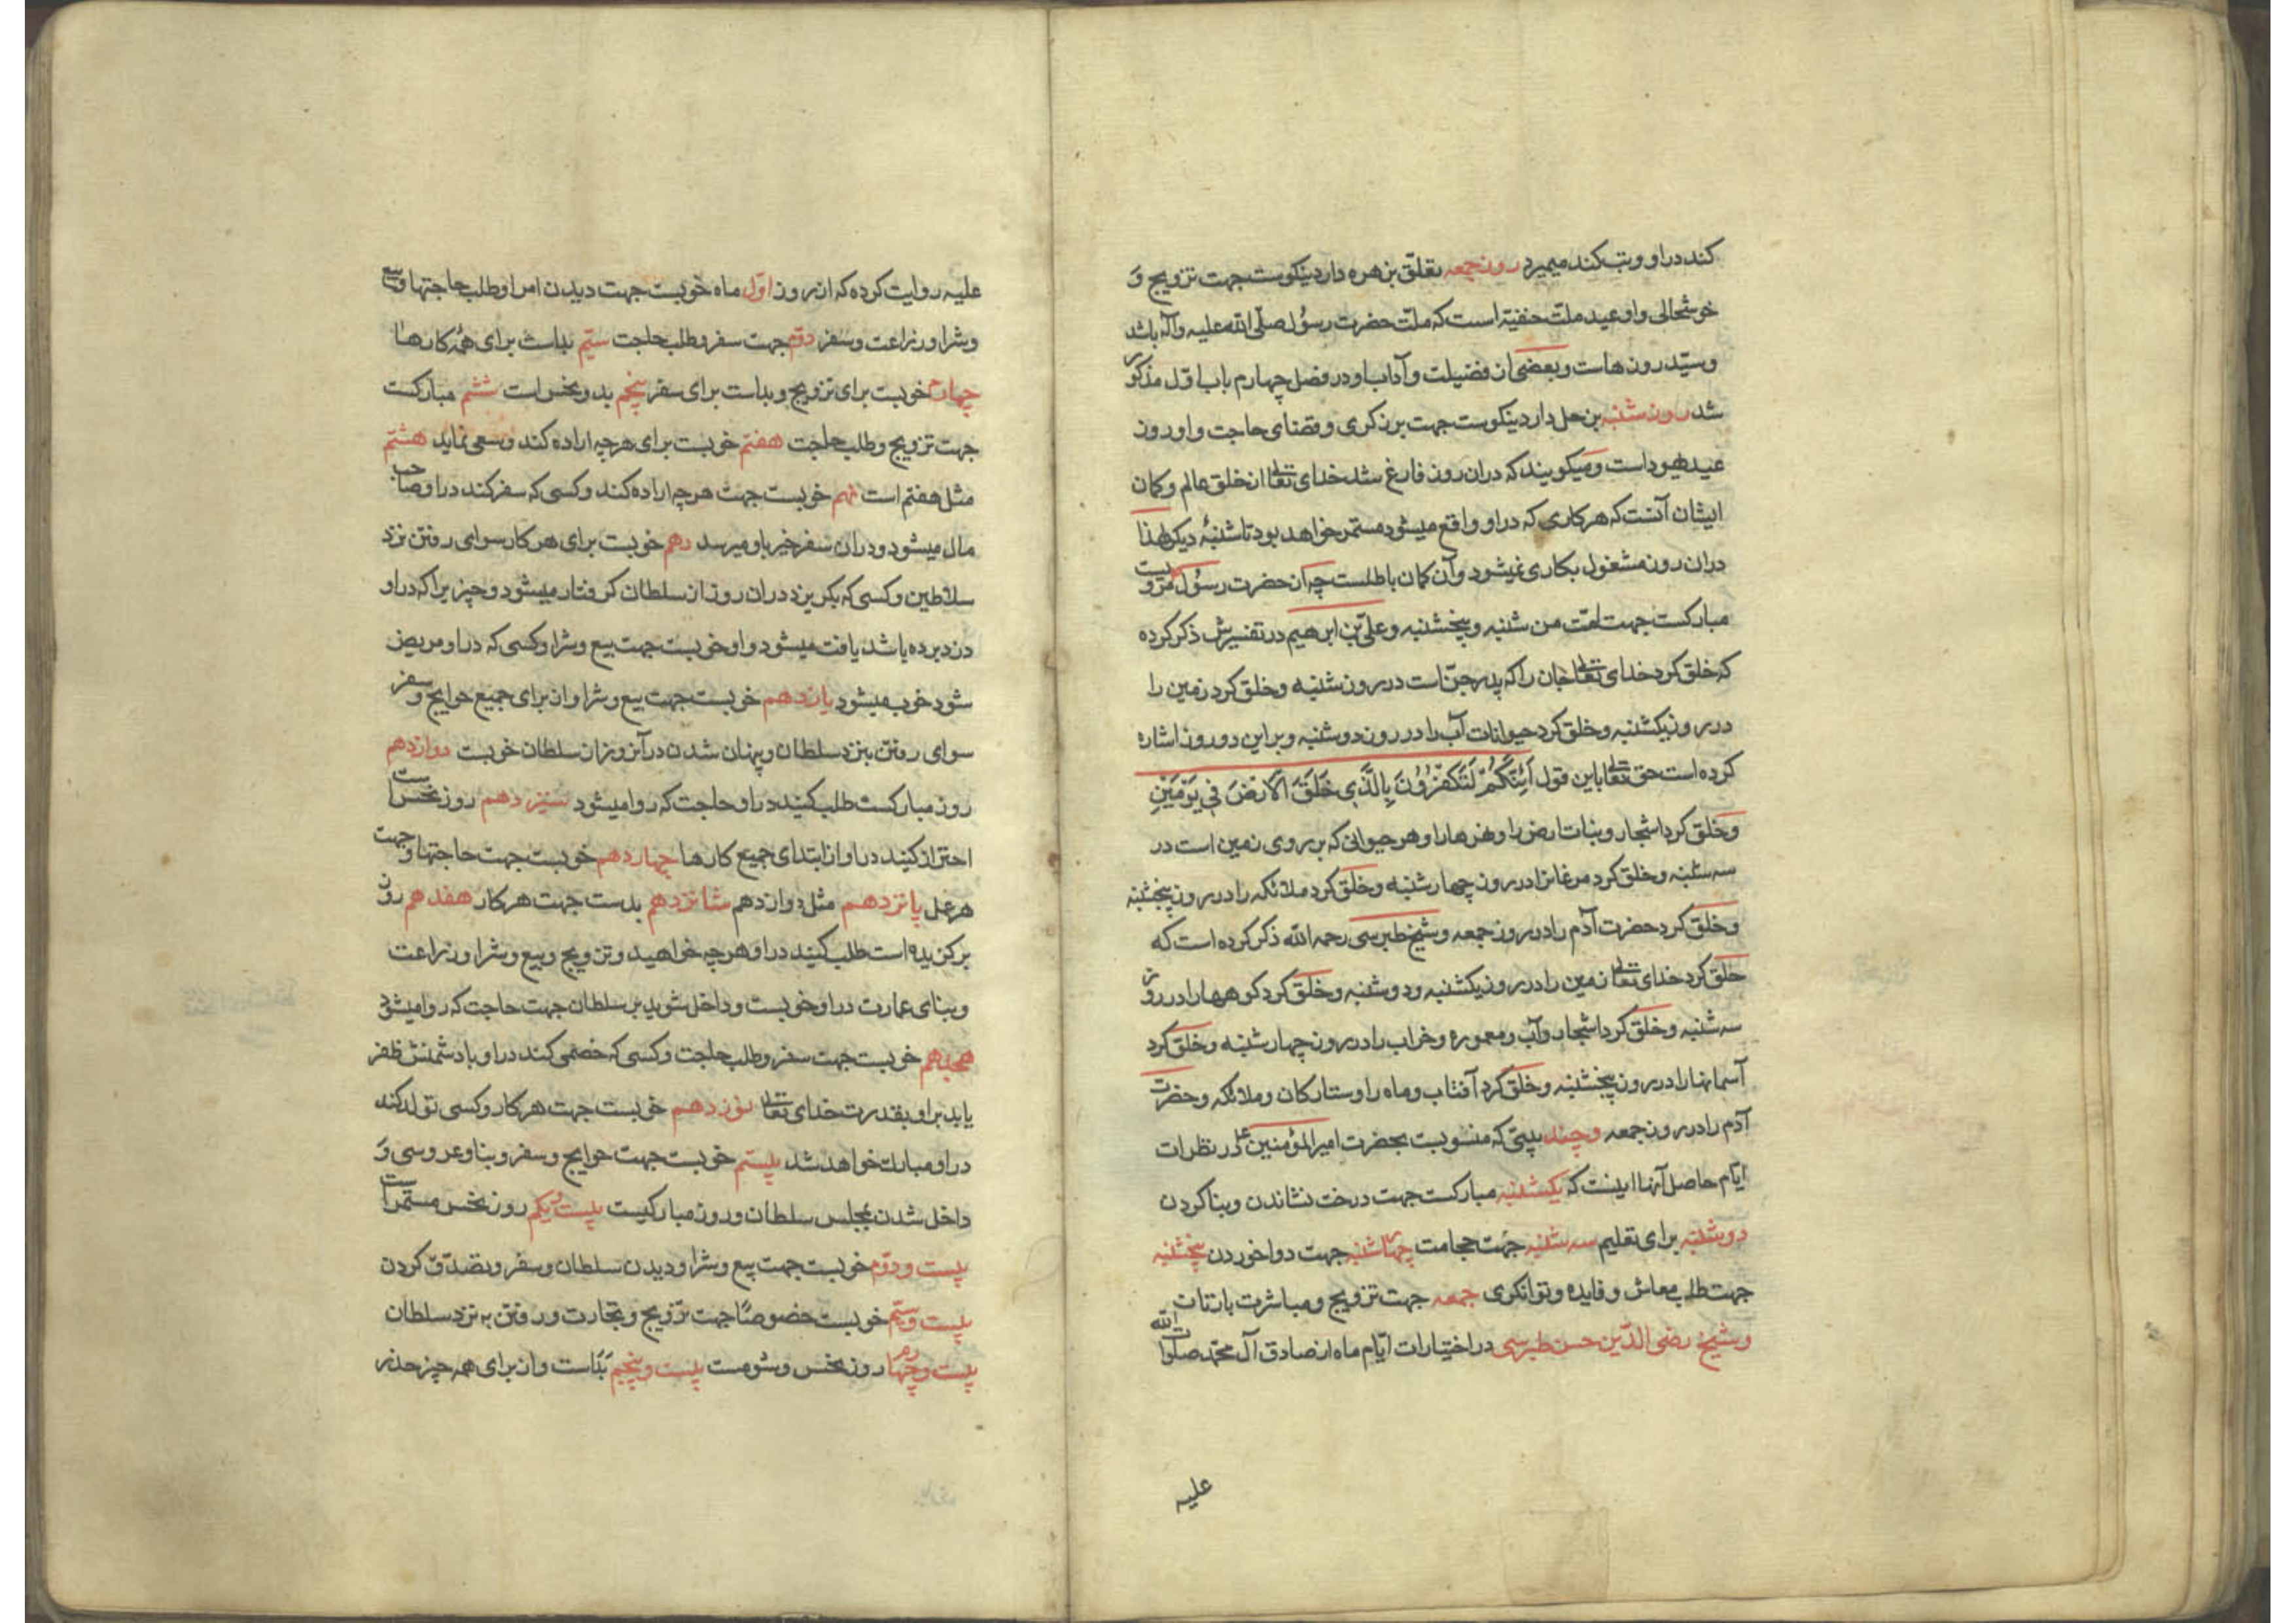 کند در او و تب کند میمیرد روز جمعه تعلّق بزهره دارد نیکوست جهت تزویج و
خوشحالی و او عید ملت حنفیة است که ملّت حضرت رسول صلّی الله علیه وآله باشد
و سیّد روزهاست و بعضی از فضیلت و آداب او در فصل چهارم باب اول مذکور
شد روز شنبه بزحل دارد نیکوست جهت برزکری و قضای حاجت و او روز
عید یهود است و میکویند که در ان روز فارغ شد خدای تعالی از خلق عالم و کمان
ایشان آنست که هر کاری که در او واقع میشود مستمر خواهد بود تا شنبهٔ دیکر لهذا
در ان روز مشغول بکاری نمیشود و آن کمان باطلست چه از حضرت رسول مرویست
مبارکست جهت امّت من شنبه و پنجشنبه و علی بن ابرهیم در تفسیرش ذکر کرده
که خلق کرد خدای تعالی جان را که پدر جنّ است در روز شنبه و خلق کرد زمین را
در روز یکشنبه و خلق کرد حیوانات آب را در روز دوشنبه و بر این دو روز اشاره
کرده است حق تعالی باین قول اَئِنَّکُمْ لَتَکْفُرُونَ بِالَّذِی خَلَقَ الْاَرْضَ فِی یَوْمَیْنِ
و خلق کرد اشجار و نبات ارض را و نهرها را و هر حیوانی که بر روی زمین است در
سه شنبه و خلق کرد مرغانرا در روز چهارشنبه و خلق کرد ملائکه را در روز پنجشنبه
و خلق کرد حضرت آدم را در روز جمعه و شیخ طبرسی رحمه الله ذکر کرده است که
خلق کرد خدای تعالی زمین را در روز یکشنبه و دوشنبه و خلق کرد کوهها را در روز
سه شنبه و خلق کرد اشجار و آب و معموره و خراب را در روز چهارشنبه و خلق کرد
آسمانها را در روز پنجشنبه و خلق کرد آفتاب و ماه را و ستارکان و ملائکه و حضرت
آدم را در روز جمعه و چند بیتی که منسوبست بحضرت امیرالمؤمنین ع در نظرات
ایّام حاصل آنها اینست که یکشنبه مبارکست جهت درخت نشاندن و بنا کردن
دوشنبه برای تعلیم سه شنبه جهت حجامت چهارشنبه جهت دوا خوردن پنجشنبه
جهت طلب معاش و فایده و توانکری جمعه جهت تزویج و مباشرت بازنان
و شیخ رضی الدّین حسن طبرسی در اختیارات ایّام ماه از صادق آل محمّد صلوات الله
علیه
علیه روایت کرده که از روز اوّل ماه خوبست جهت دیدن امرا و طلب حاجتها و بیع
و شرا و زراعت و سفر دوّم جهت سفر و طلب حاجت سیّم بد است برای همهٔ کارها
چهارم خوبست برای تزویج و بد است برای سفر پنجم بد و نحس است ششم مبارکست
جهت تزویج و طلب حاجت هفتم خوبست برای هر چه اراده کند و سعی نماید هشتم
مثل هفتم است نهم خوبست جهت هر چه اراده کند و کسی که سفر کند در او صاحب
مال میشود و در ان سفر خیر باو میرسد دهم خوبست برای هر کار سوای رفتن نزد
سلاطین و کسی که بکریزد در ان روز از سلطان کرفتار میشود و چیزیرا که در او
دزد برده باشد یافت میشود و او خوبست جهت بیع و شرا و کسی که در او مریض
شود خوب میشود یازدهم خوبست جهت بیع و شرا و از برای جمیع حوایج و سفر
سوای رفتن بنزد سلطان و پنهان شدن در آنروز از سلطان خوبست دوازدهم
روز مبارکست طلب کنید در او حاجت که روا میشود سیزدهم روز نحس است
احتراز کنید در او از ابتدای جمیع کارها چهاردهم خوبست جهت حاجتها و جهت
هر عمل پانزدهم مثل دوازدهم شانزدهم بدست جهت هر کار هفدهم روز
برکزیده است طلب کنید در او هر چه خواهید و تزویج و بیع و شرا و زراعت
و بنای عمارت در او خوبست و داخل شوید بر سلطان جهت حاجت که روا میشود
هجدهم خوبست جهت سفر و طلب حاجت و کسی که خصمی کند در او با دشمنش ظفر
یابد بر او بقدرت خدای تعالی نوزدهم خوبست جهت هر کار و کسی تولد کند
در او مبارک خواهد شد بیستم خوبست جهت حوایج و سفر و بنا و عروسی و
داخل شدن بمجلس سلطان و روز مبارکیست بیست و یکم روز نحس مستمر است
بیست و دوّم خوبست جهت بیع و شرا و دیدن سلطان و سفر و تصدّق کردن
بیست و سیّم خوبست خصوصًا جهت تزویج و تجارت و رفتن به نزد سلطان
بیست و چهارم روز نحس و شومست بیست و پنجم بد است و از برای همه چیز حذر